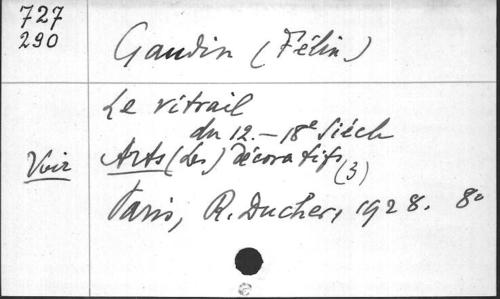 727
290
Gaudin (Félin)
Le vitrail
du 12.-18e Siéch
Voir Arts (Les) Décoratifs (3)
Paris, R. Ducher, 1928. 8°